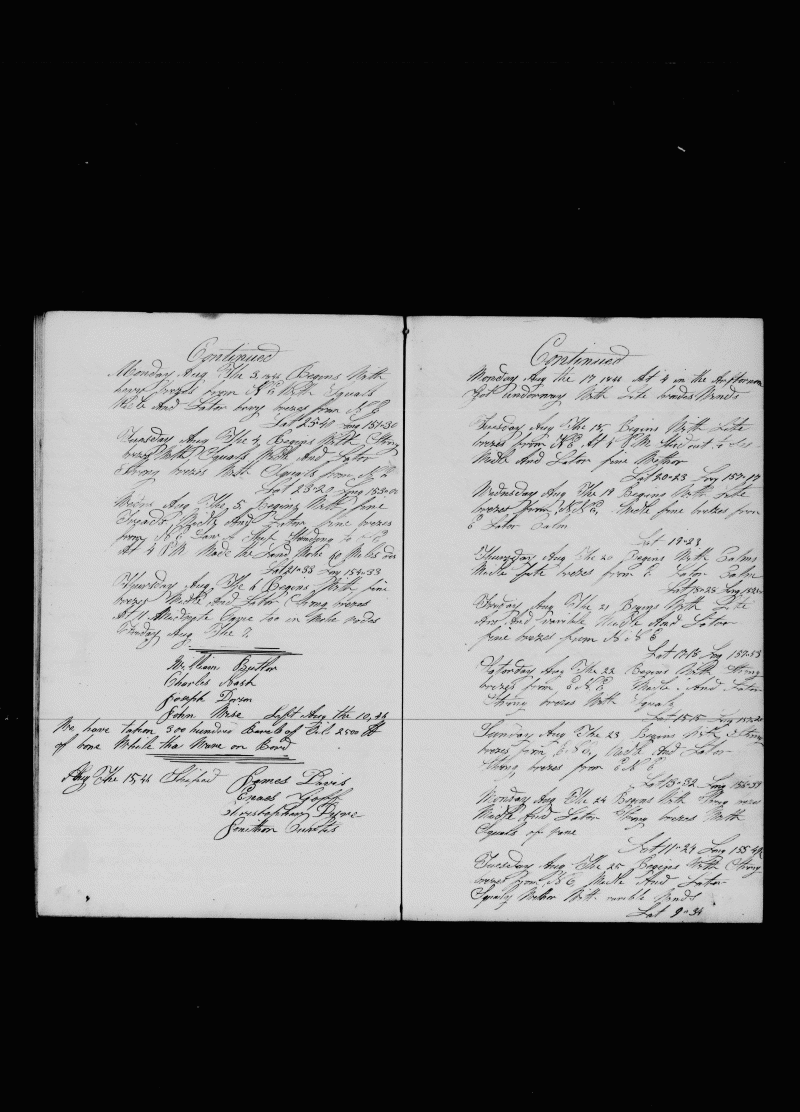 Continued
Monday Aug The 3 1846 Begins With
hevy brezes from N E With Squals
Midle And Lator hevy brezes from N E
Lat 25-40 Long 151-30
Tuesday Aug The 4 Begins With Strong
brezes With Squals Midle And Lator
Strong brezes With Squals from N E
Lat 23-20 Long 153-00
Wedns Aug The 5 Begins With fine
Treads Midle And Lator fine brezes
from N E Saw a Ship Standing to
At 4 P M Made the Land
Lat 21-33 Long 154-33
Thursday Aug The 6 Begins With fine
brezes Midle And Lator Strong brezes
At 11 Came too in
Friday Aug The 7
William Butlor
Charles Nash
Joseph
John Left Aug the 10, 46
We have taken 300 hundred Barels of Oil 2500 lb
of bone While tha Ware on Bord
Aug The 15, 46 Shiped James Davis
Goff
Christophaer
Jonithan Curtis
Continued
Monday Aug the 17 1846 At 4 in the Aafternoon
Got underway With Lite Winds
Tuesday Aug The 18, Begins With Lite
brezes from N E At 5 P M
Midle And Lator fine Wether
Lat 20-23 Long 157-17
Wednesday Aug The 19 Begins With Lite
brezes from N N E, Midle fine brezes from
E Lator Calm
Lat 19-23
Thursday Aug The 20 Begins With Calms
Midle Lite brezes from E Lator Calm
Lat 18-25 Long
Friday Aug The 21 Begins With Lite
Airs And varible Midle And Lator
fine brezes from N N E
Lat 17-13 Long 157-53
Satorday Aug The 22 Begins With Strong
brezes from E N E Midle And Lator
Strong brezes With Squals
Lat 15-15 Long 157-20
Sonday Aug The 23 Begins With Strong
brezes from Midle And Lator
Strong brezes from E N E
Lat 13-32 Long 156-39
Monday Aug The 24 Begins With Strong brezes
Midle And Lator Strong brezes With
Squals of rane
Lat 11-24 Long 155-42
Tuesday Aug The 25 Begins With Strong
brezes from N E, Midle And Lator
Squaly Wether With varible Winds
Lat 9-34